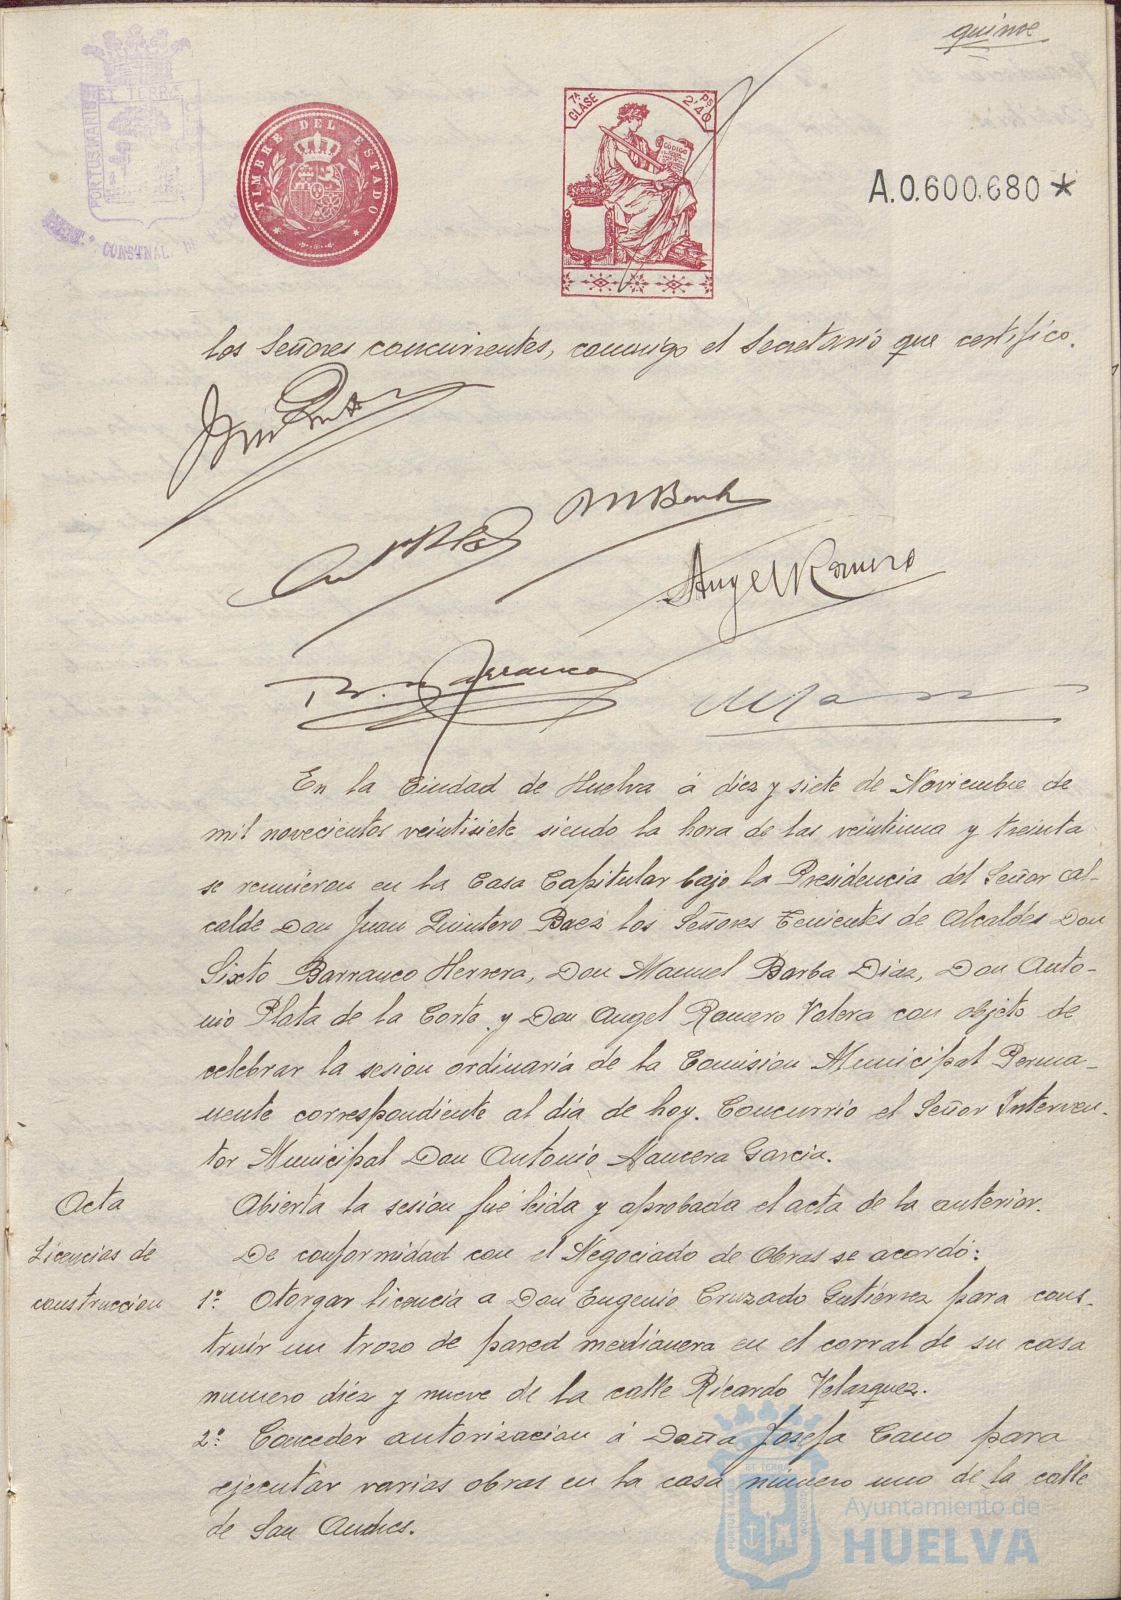 quince
PORTUS MARIS ET TERRÆ
CONSTNAL.
TIMBRE DEL ESTADO
7ª CLASE
PS 2'40
CÓDIGO
A.0.600.680*
los Señores concurrentes, conmigo el Secretario que certifico.
M Barba
Angel Romero
Barranco
En la Ciudad de Huelva á diez y siete de Noviembre de
mil novecientos veintisiete siendo la hora de las veintiuna y treinta
se reunieron en la Casa Capitular bajo la Presidencia del Señor Al-
calde Don Juan Quintero Baez los Señores Tenientes de Alcaldes Don
Sixto Barranco Herrera, Don Manuel Barba Diaz, Don Anto-
nio Plata de la Corte y Don Angel Romero Valera con objeto de
celebrar la sesion ordinaria de la Comision Municipal Perma-
nente correspondiente al dia de hoy. Concurrió el Señor Interven-
tor Municipal Don Antonio Mancera Garcia.
Acta
Abierta la sesion fué leida y aprobada el acta de la anterior.
Licencias de
De conformidad con el Negociado de Obras se acordó:
construccion
1º. Otorgar licencia a Don Eugenio Cruzado Gutiérrez para cons-
truir un trozo de pared medianera en el corral de su casa
numero diez y nueve de la calle Ricardo Velazquez.
2º. Conceder autorizacion á Doña Josefa Cano para
ejecutar varias obras en la casa número uno de la calle
de San Andres.
Ayuntamiento de
HUELVA